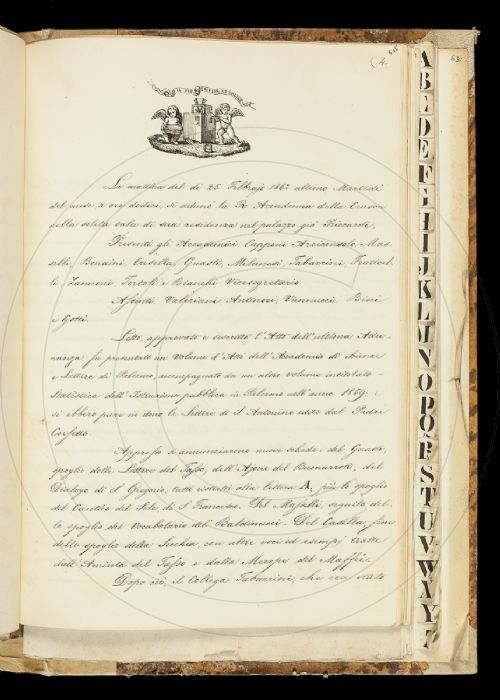 4.
La mattina del di 25 Febbrajo 1862 ultimo Martedì
del mese a ore dodici, si adunò la R. Accademia della Crusca
nella solita sala di sua residenza nel palazzo già Riccardi.
Presenti gli Accademici Capponi Arciconsolo
Bonaini, Casella, Guasti, Milanesi, Tabarrini,
Zannoni Tortoli e Bianchi Vicesegretario
Assenti Valeriani Antinori, Vannucci, Bini
e Gotti.
Letto, approvato e soscritto l'Atto dell'ultima Adu-
nanza fu presentato un Volume d'Atti dell'Accademia di Scienze
e Lettere di Palermo, accompagnato da un altro volume intitolato
Statistica dell'Istruzione pubblica in Palermo nell'anno 1859: e
si ebbero pure in dono le Lettere di S. Antonino edite dal Padre
Appresso si annunziarono nuove schede: del Guasti,
spoglio delle Lettere del Tasso, dell'Ajone del Buonarroti, del
Dialogo di S. Gregorio, tutti estratti alla lettera A, più lo spoglio
del Cantico del Sole, di S. Francesco. Del seguito del-
lo spoglio del Vocabolario del Baldinucci. Del Casella, fine
dello spoglio della Secchia, con altre voci ed esempj tratti
dall'Aminta del Tasso e dalla Merope del Maffei.
Dopo ciò, il Collega Tabarrini, che era stato
A
B
C
D
E
F
G
H
I
J
K
L
M
N
O
P
Q
R
S
T
U
V
W
X
Y
Z